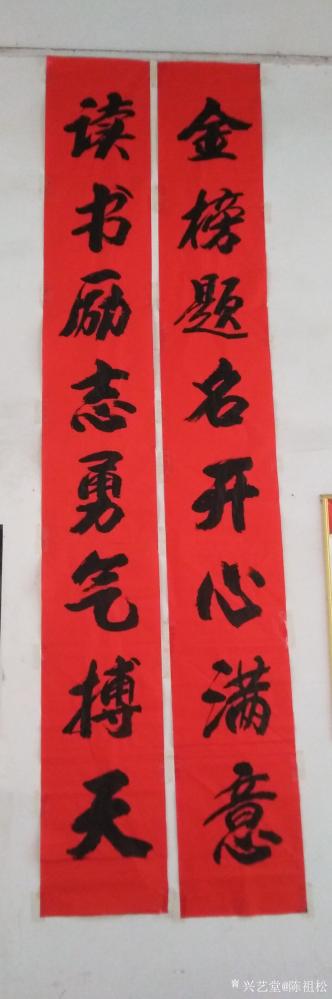 金榜题名开心满意
读书励志勇气搏天
兴艺堂@陈祖松